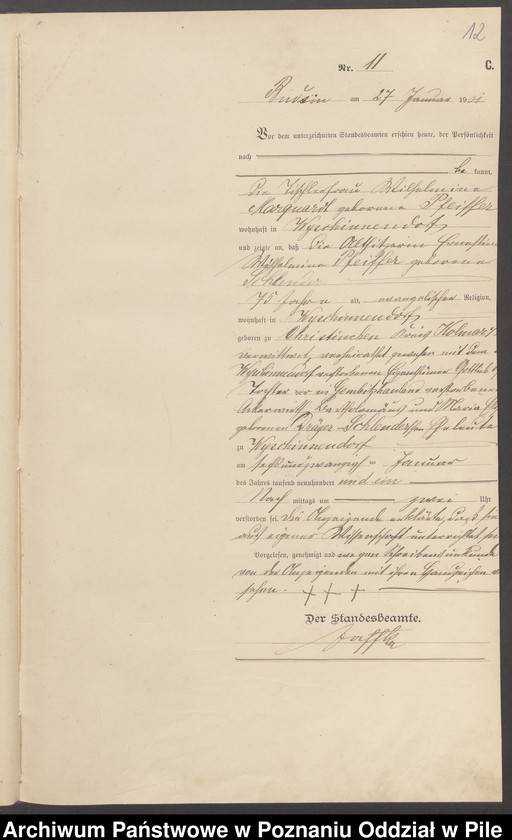 12
Nr. 11
C.
Budsin am 27 Januar 1901
Vor dem unterzeichneten Standesbeamten erschien heute, der Persönlichkeit
nach
be kannt,
die Tischlerfrau Wilhelmine
Marquardt geborene Pfeiffer
wohnhaft in Wyschinnendorf,
und zeigte an, daß die Altsitzerin Ernestine
Wilhelmine Pfeiffer geborene
Schlender
75 Jahre alt, evangelischer Religion,
wohnhaft in Wyschinnendorf,
geboren zu Christinchen Kreis Kolmar,
verwittwet, verheirathet gewesen mit dem
Wyschinnendorf verstorbenen Eigenthümer Gottlieb
Tochter der in verstorbenen
und Maria
geborenen Dräger-Schlenderschen Eheleute
zu Wyschinnendorf
am sechsundzwanzigsten Januar
des Jahres tausend neunhundert und ein
Nach mittags um zwei Uhr
verstorben sei. Die Anzeigende erklärte, daß sie
aus eigener Wissenschaft unterrichtet sei
Vorgelesen, genehmigt und wegen Schreibensunkunde
von der Anzeigenden mit ihrem Handzeichen ver
sehen. + + +
Der Standesbeamte.
Archiwum Państwowe w Poznaniu Oddział w Pile